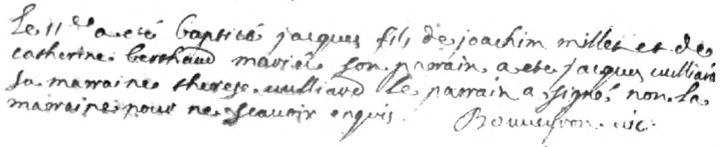 Le 11e a eté baptisé jacques fils de joachim millet et de
catherine berthaud mariés son parain a ete jacques vulliard
sa marraine therese vulliard le parrain a signé non la
marraine pour ne scavoir enquis. Bouveyron vic.